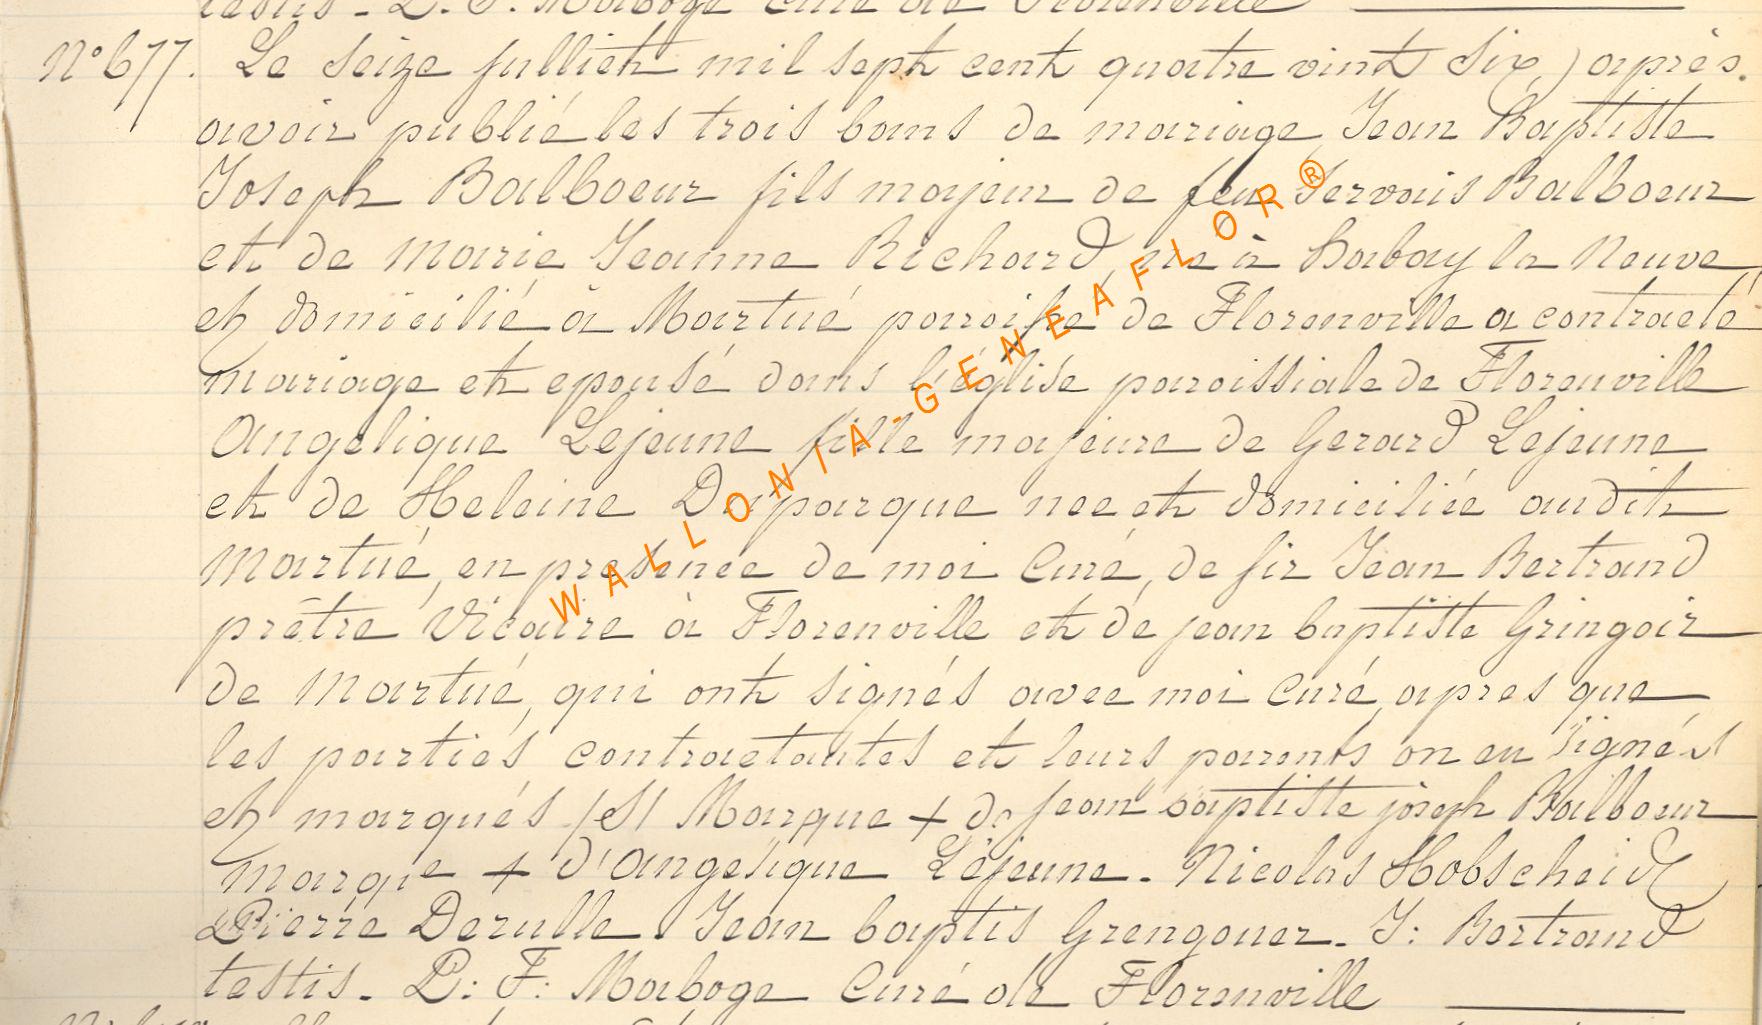 testis - L. F. Maboge Curé de Florenville
N° 677. Le seize julliet mil sept cent quatre vint six, après
avoir publié les trois bans de mariage, Jean Baptiste
Joseph Balboeur fils majeur de feu Servais Balboeur
et de Marie Jeanne Richard, né à habay la Neuve
et domicilié à Martué paroisse de Florenville a contracté
mariage et epousé dans l'église paroissiale de Florenville
Angelique Lejeune fille majeure de Gerard Lejeune
et de Heleine Duparque nee et domiciliée audit
Martué, en presence de moi Curé, de sir Jean Bertrand
prêtre Vicaire à Florenville et de jean baptiste Gringoir
de Martué, qui ont signés avec moi Curé, apres que
les partiés contractantes et leurs parents on eu signés
et marqués /S/ Marque + de jean baptiste joseph Balboeur
marque + d'Angelique Lejeune - Nicolas Hobscheid
Pierre Derulle. Jean baptis Grengouer - J: Bertrand
testis - L: F: Maboge Curé de Florenville
WALLONIA-GENEAFLOR®